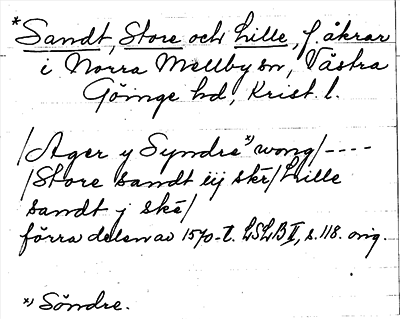 *Sandt, Store och Lille, f. åkrar
i Norra Mellby sn, Västra
Göinge hd, Krist. l.
/Ager y Syndre *) wong/----
/Store sandt iij ske/Lille
sandt j ske/
förra delen av 1570-t. LSLB II, s. 118. orig.
*) Söndre.